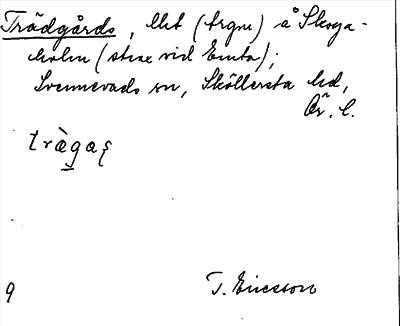 Trädgårds, lht (trgn) å Skoga-
holm (strax vid Emta);
Svennevads sn, Sköllersta hd,
Ör. l.
trägas
9
T. Ericsson